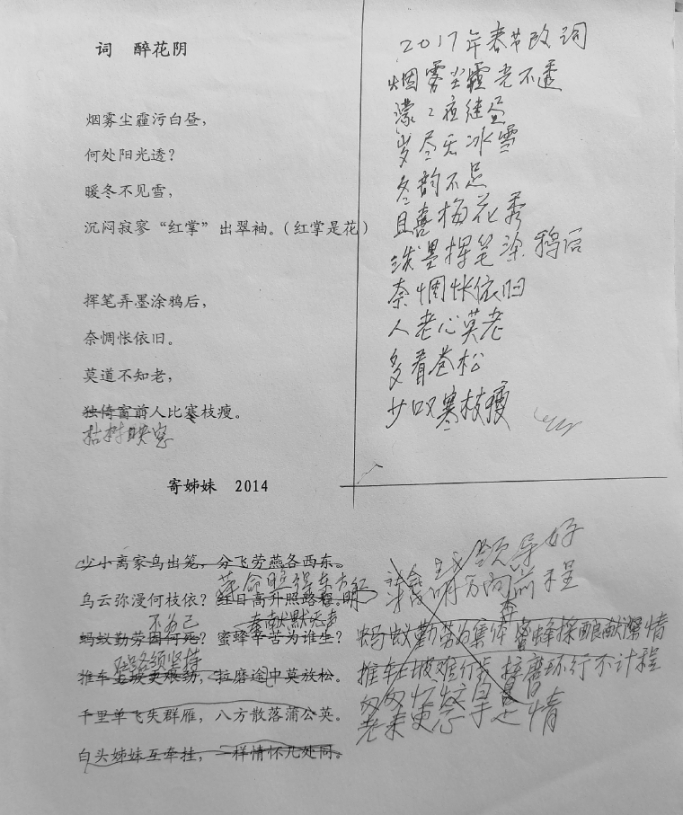 词 醉花阴
烟雾尘霾污白昼，
何处阳光透？
暖冬不见雪，
沉闷寂寥“红掌”出翠袖。（红掌是花）
挥笔弄墨涂鸦后，
奈惆怅依旧。
莫道不知老，
独倚窗前人比寒枝瘦。
枯树映窗
2017年春节改词
烟雾尘霾光不透
濛々夜继昼
岁尽无冰雪
冬韵不足
且喜梅花秀
泼墨挥笔涂鸦后
奈惆怅依旧
人老心莫老
多看苍松
少叹寒枝瘦
寄姊妹 2014
少小离家鸟出笼，分飞劳燕各西东。
革命胜得东方红
乌云弥漫何枝依？红日高升照路程。明
不为己
奉献默无声
蚂蚁勤劳因何死？蜜蜂辛苦为谁生？
推车上坡更艰劲，拉磨途中莫放松。
千里单飞失群雁，八方散落蒲公英。
白头姊妹互牵挂，一样情怀几处同。
领导好
明方向前程
蚂蚁勤劳为集体 蜜蜂採酿献激情
推车上坡难行步 接磨环行不计程
老来更惹是情